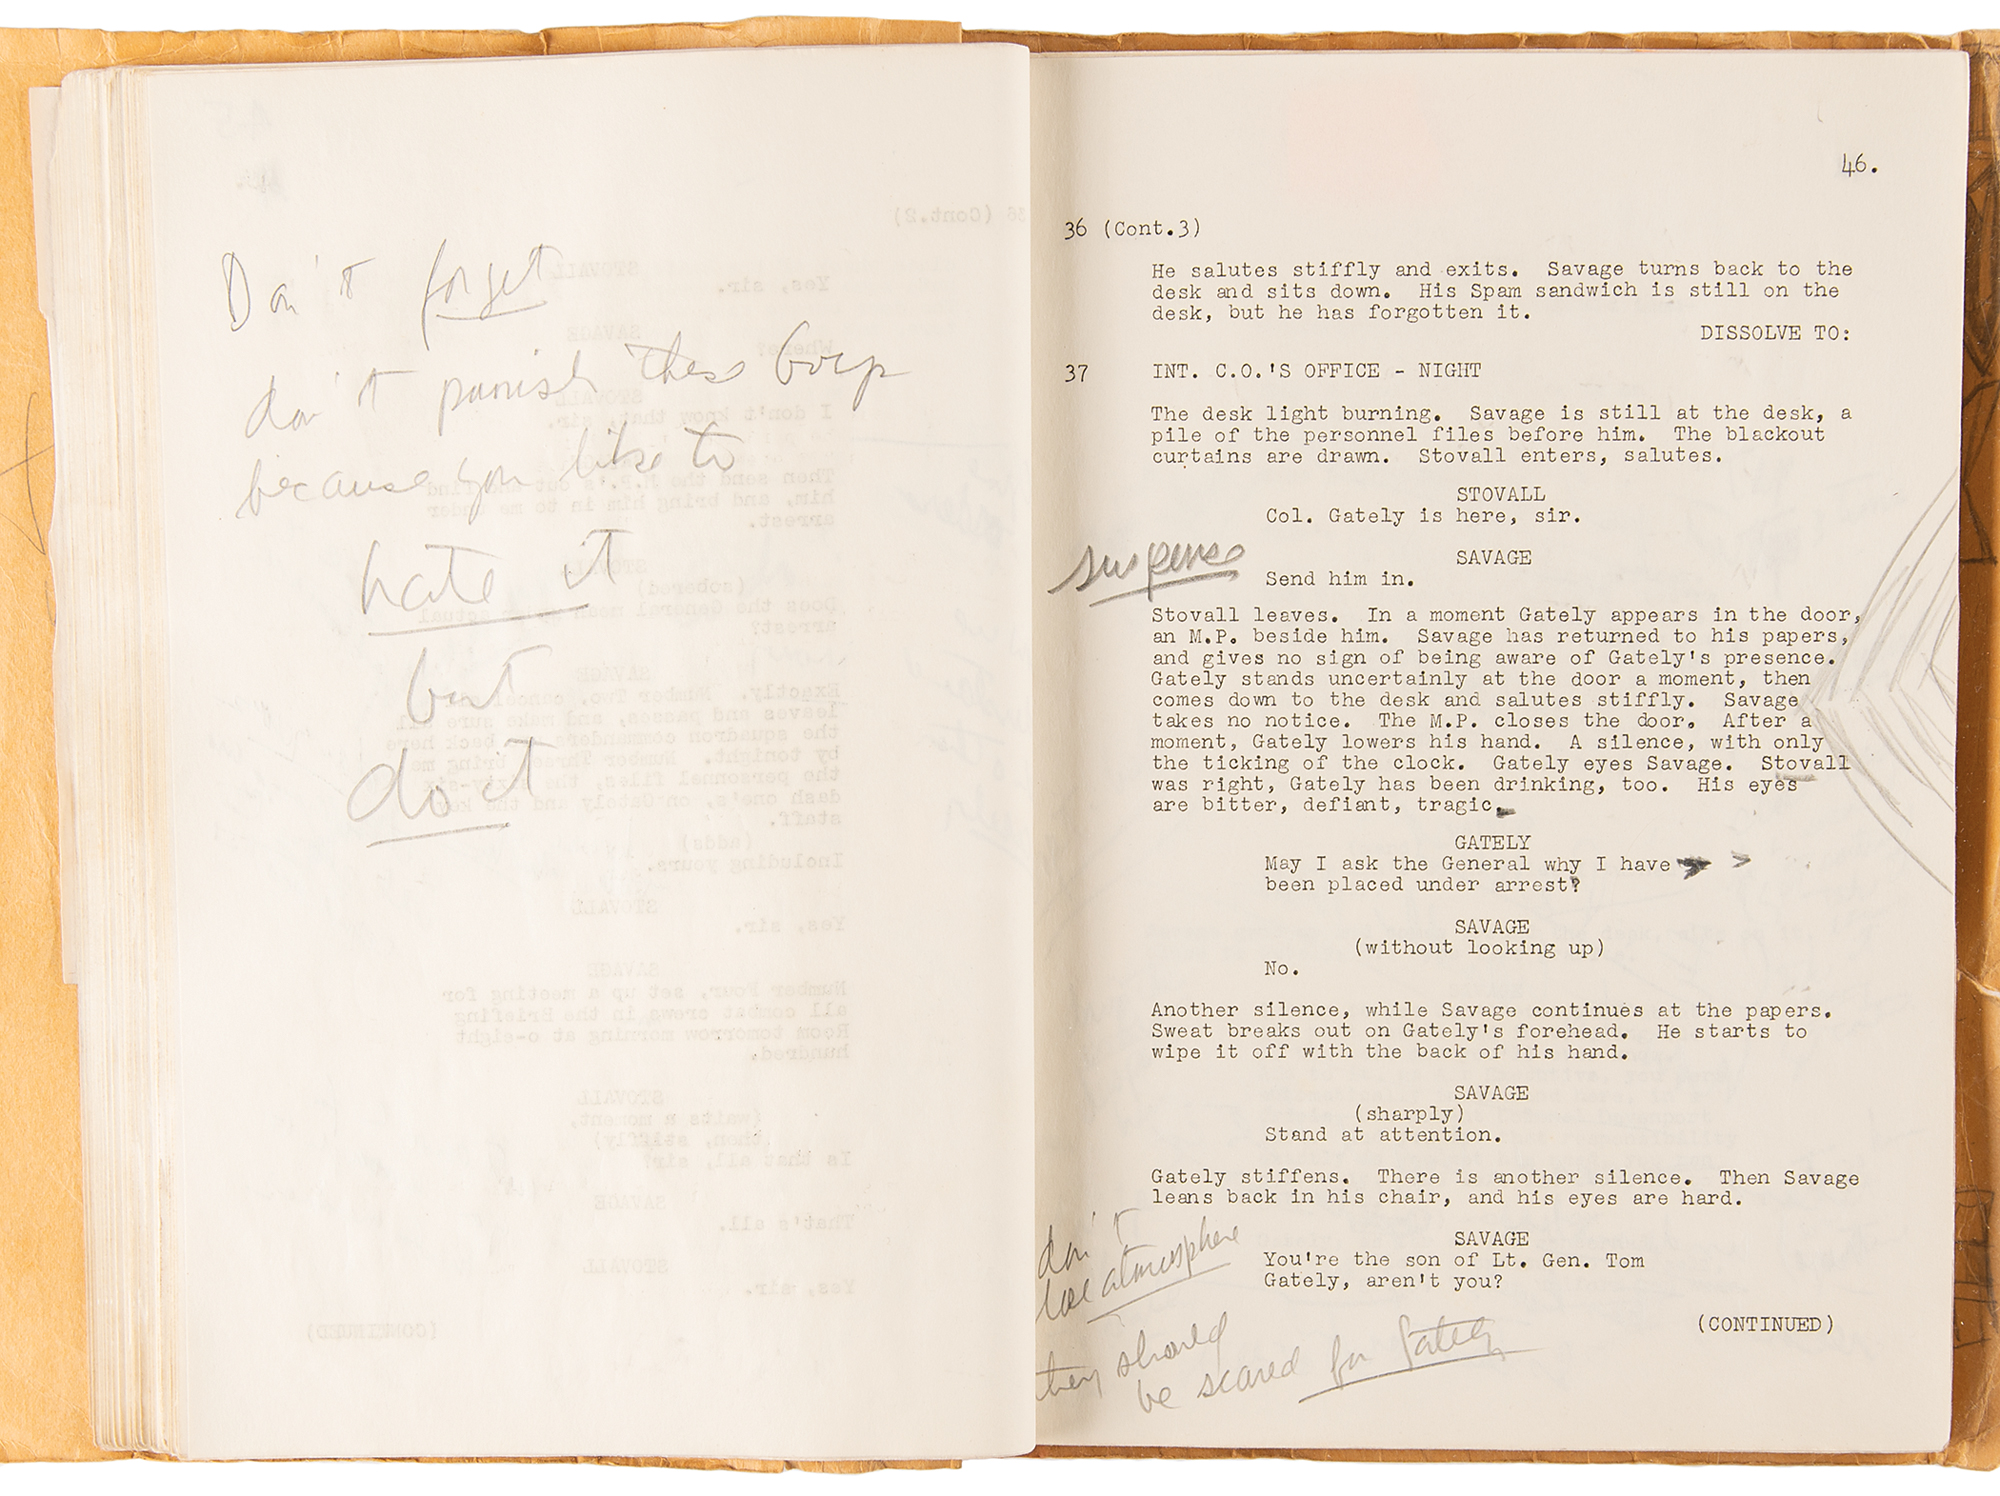 Don't forget
don't punish these boys
because you like to
hate it
but
do it
46.
36 (Cont.3)
He salutes stiffly and exits. Savage turns back to the
desk and sits down. His Spam sandwich is still on the
desk, but he has forgotten it.
DISSOLVE TO:
37 INT. C.O.'S OFFICE - NIGHT
The desk light burning. Savage is still at the desk, a
pile of the personnel files before him. The blackout
curtains are drawn. Stovall enters, salutes.
STOVALL
Col. Gately is here, sir.
suspense
SAVAGE
Send him in.
Stovall leaves. In a moment Gately appears in the door,
an M.P. beside him. Savage has returned to his papers,
and gives no sign of being aware of Gately's presence.
Gately stands uncertainly at the door a moment, then
comes down to the desk and salutes stiffly. Savage
takes no notice. The M.P. closes the door. After a
moment, Gately lowers his hand. A silence, with only
the ticking of the clock. Gately eyes Savage. Stovall
was right, Gately has been drinking, too. His eyes
are bitter, defiant, tragic.
GATELY
May I ask the General why I have
been placed under arrest?
SAVAGE
(without looking up)
No.
Another silence, while Savage continues at the papers.
Sweat breaks out on Gately's forehead. He starts to
wipe it off with the back of his hand.
SAVAGE
(sharply)
Stand at attention.
Gately stiffens. There is another silence. Then Savage
leans back in his chair, and his eyes are hard.
SAVAGE
You're the son of Lt. Gen. Tom
Gately, aren't you?
don't
lose atmosphere
they should
be scared for Gately
(CONTINUED)